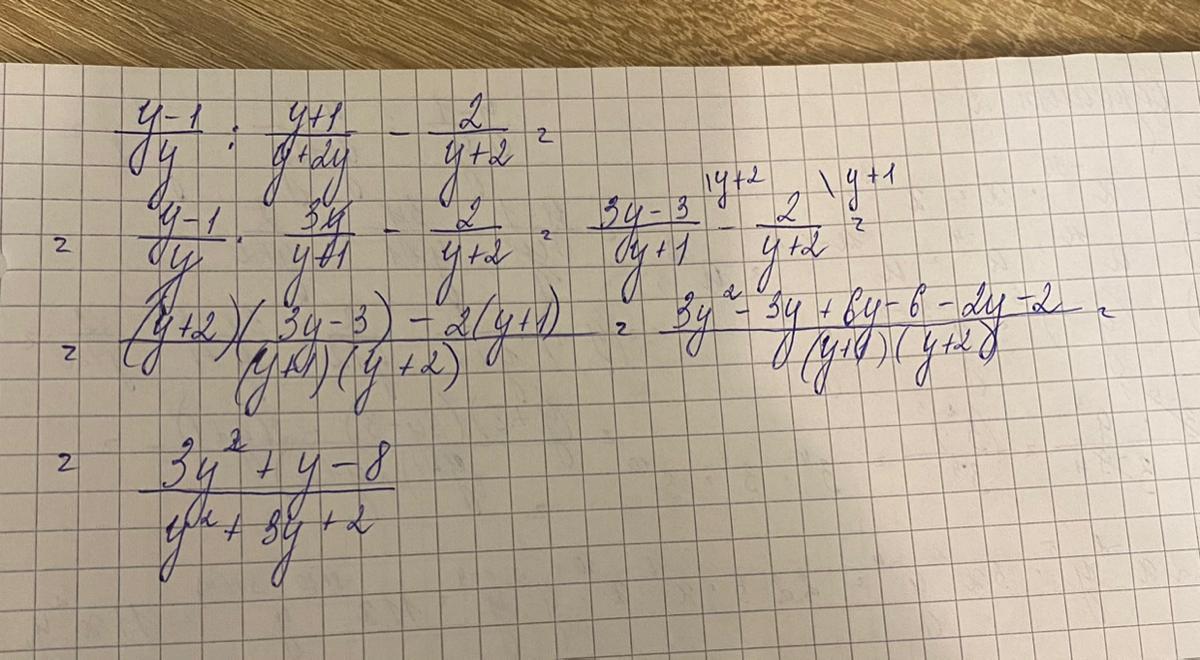 (y-1)/y : (y+1)/(y+2y) - 2/(y+2) =
= (y-1)/y · 3y/(y+1) - 2/(y+2) = (3y-3)/(y+1) \y+2 - 2/(y+2) \y+1 =
= ((y+2)(3y-3) - 2(y+1))/((y+1)(y+2)) = (3y² - 3y + 6y - 6 - 2y - 2)/((y+1)(y+2)) =
= (3y² + y - 8)/(y² + 3y + 2)